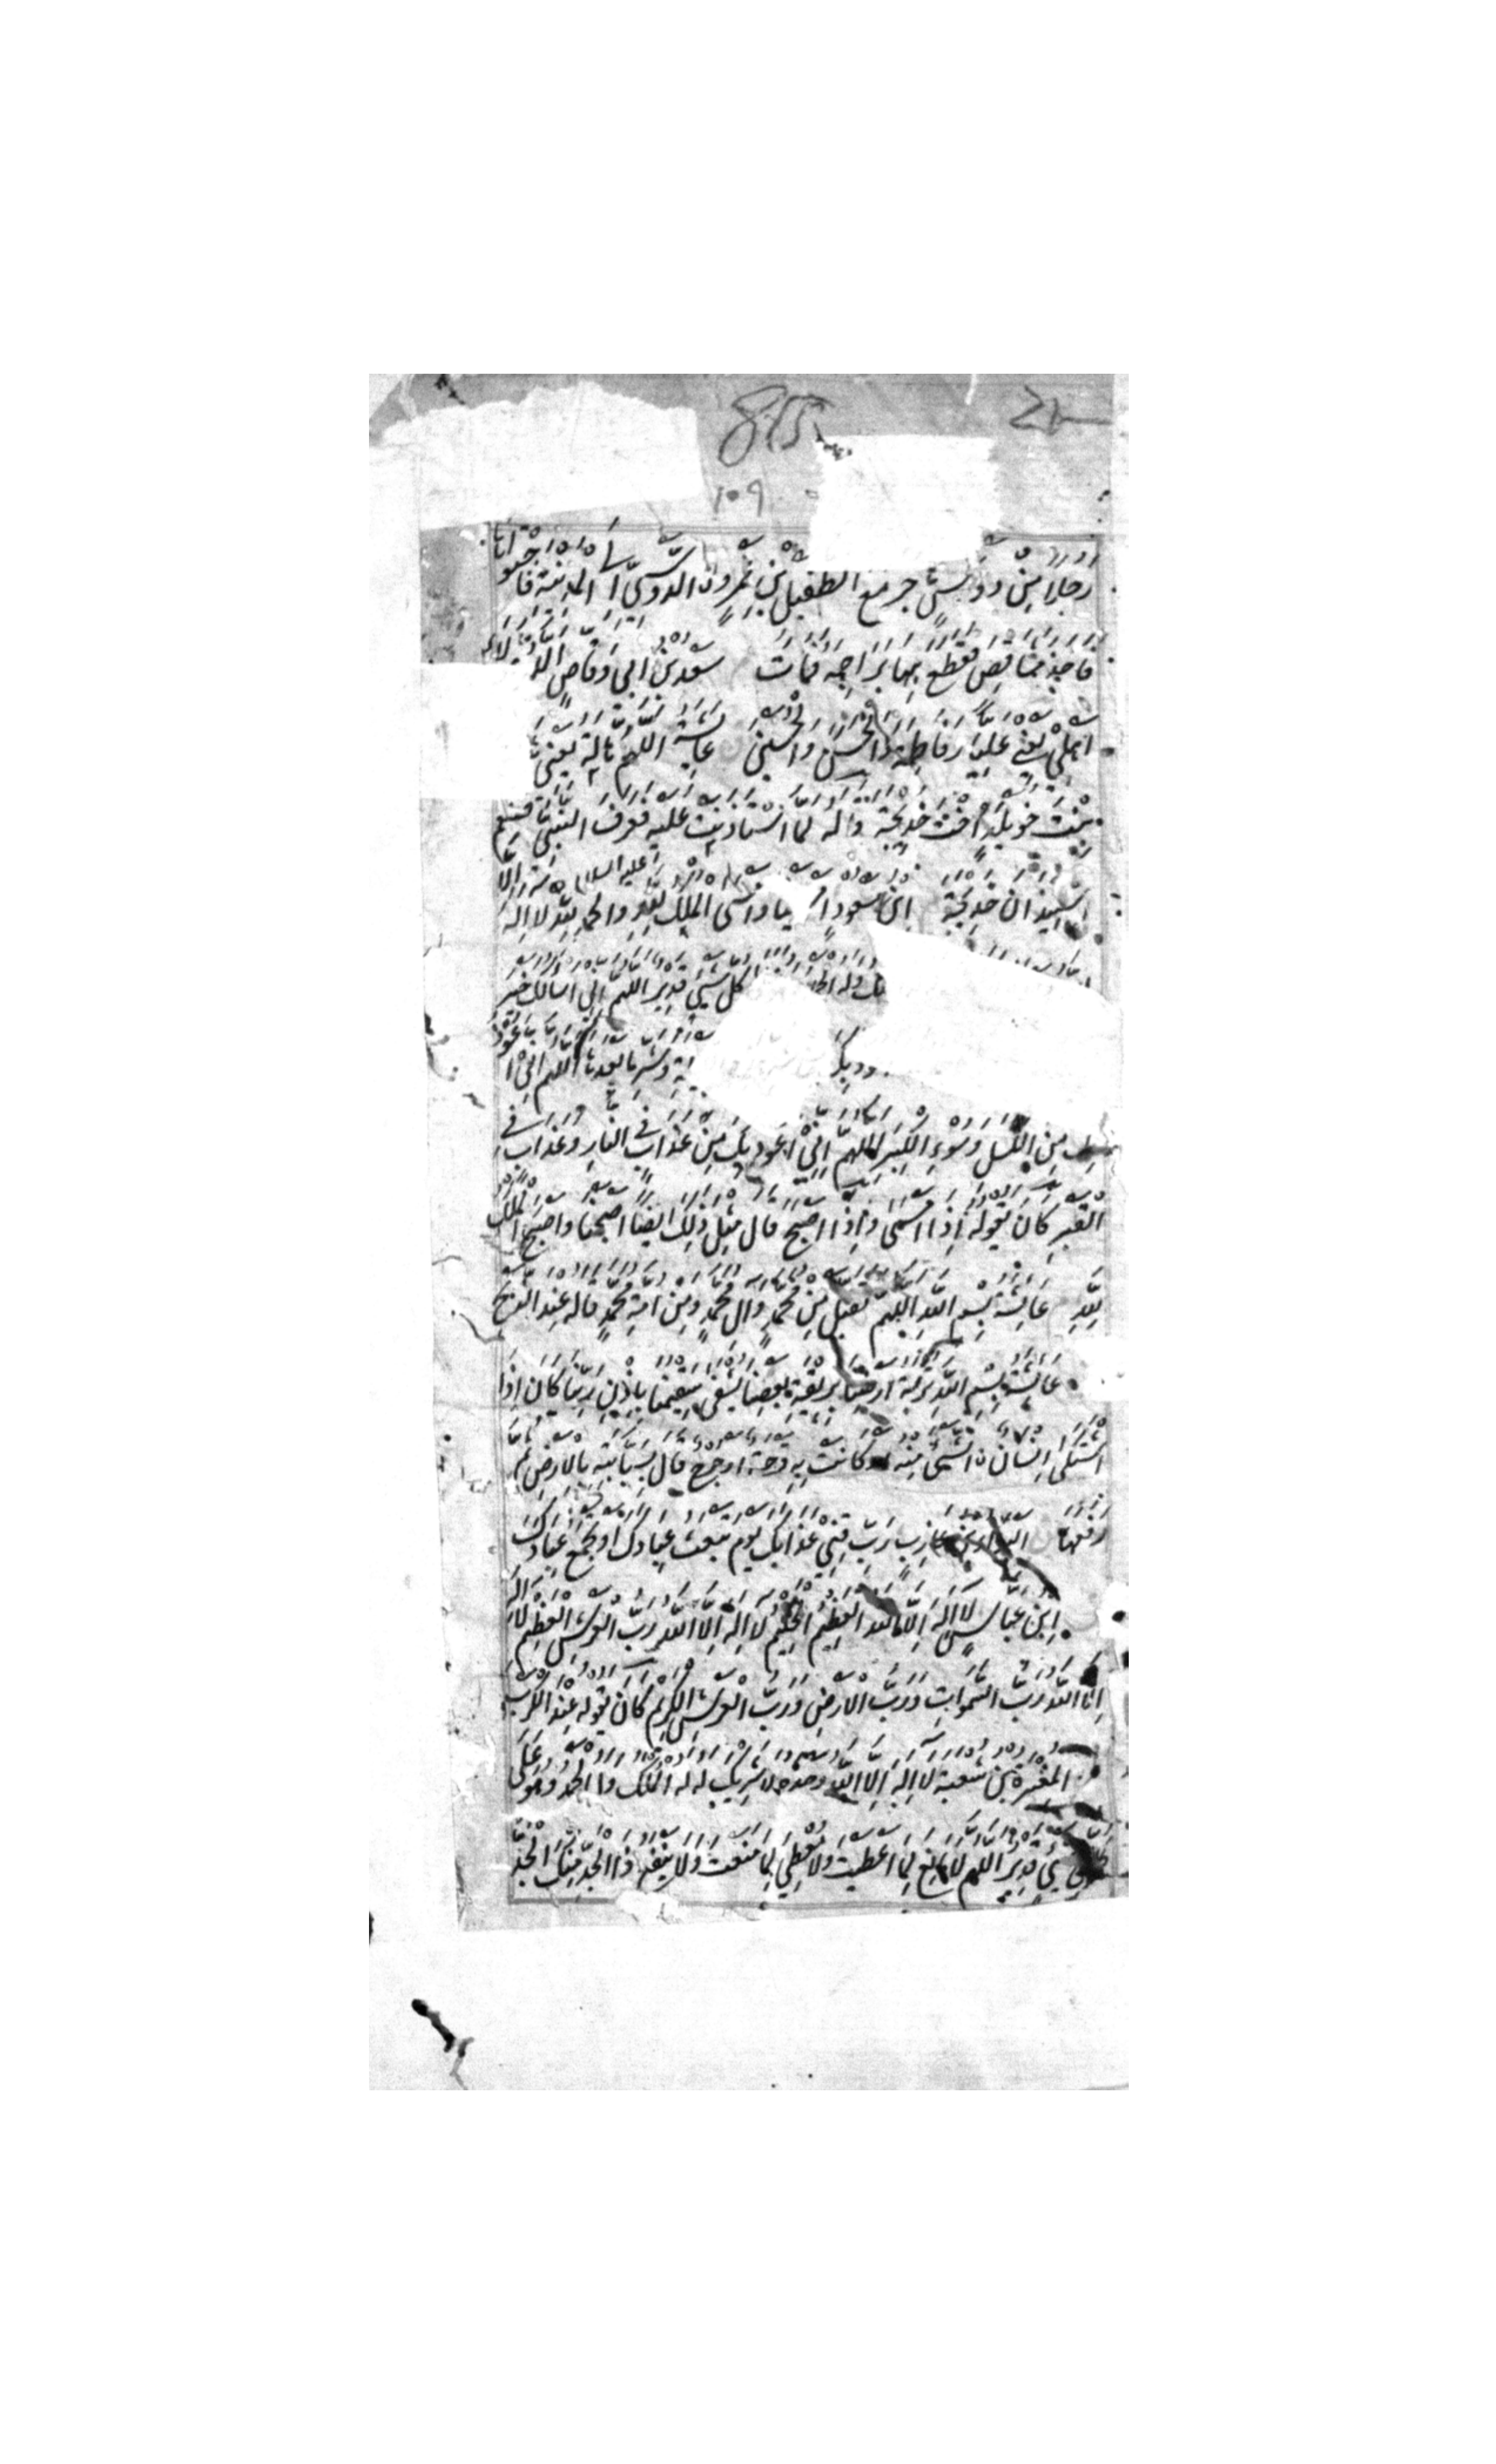 855
109
رجلا من دوس هاجر مع الطفيل بن عمرو الدوسي الى المدينة فاجتووا
فاخذ مشاقص فقطع بها براجمه فمات سعد بن ابي وقاص اللهم هؤلاء
اهلي يعني عليا وفاطمة والحسن والحسين عايشة اللهم هالة يعني
بنت خويلد اخت خديجة واله لما استاذنت عليه فعرف النبي
عليه السلام
استيذان خديجة ابن مسعود وامسى الملك لله والحمد لله لا اله الا
وله كل شيء قدير اللهم اني اسالك خير
وشر ما بعدها اللهم اني اعوذ
بك من الكسل وسوء الكبر اللهم اني اعوذ بك من عذاب في النار وعذاب في
القبر كان يقوله اذا امسى واذا اصبح قال مثل ذلك ايضا اصبحنا واصبح الملك
لله عايشة بسم الله اللهم تقبل من محمد وال محمد ومن امة محمد قاله عند الذبح
عايشة بسم الله تربة ارضنا بريقة بعضنا يشفى سقيمنا باذن ربنا كان اذا
اشتكى انسان الشيء منه او كانت به قرحة او جرح قال بسبابته بالارض ثم
رفعها البراء بن عازب رب قني عذابك يوم تبعث عبادك او تجمع عبادك
ابن عباس لا اله الا الله العظيم الحليم لا اله الا الله رب العرش العظيم لا اله
الا الله رب السموات ورب الارض ورب العرش الكريم كان يقوله عند الكرب
المغيرة بن شعبة لا اله الا الله وحده لا شريك له له الملك وله الحمد وهو على
كل شيء قدير اللهم لا مانع لما اعطيت ولا معطي لما منعت ولا ينفع ذا الجد منك الجد